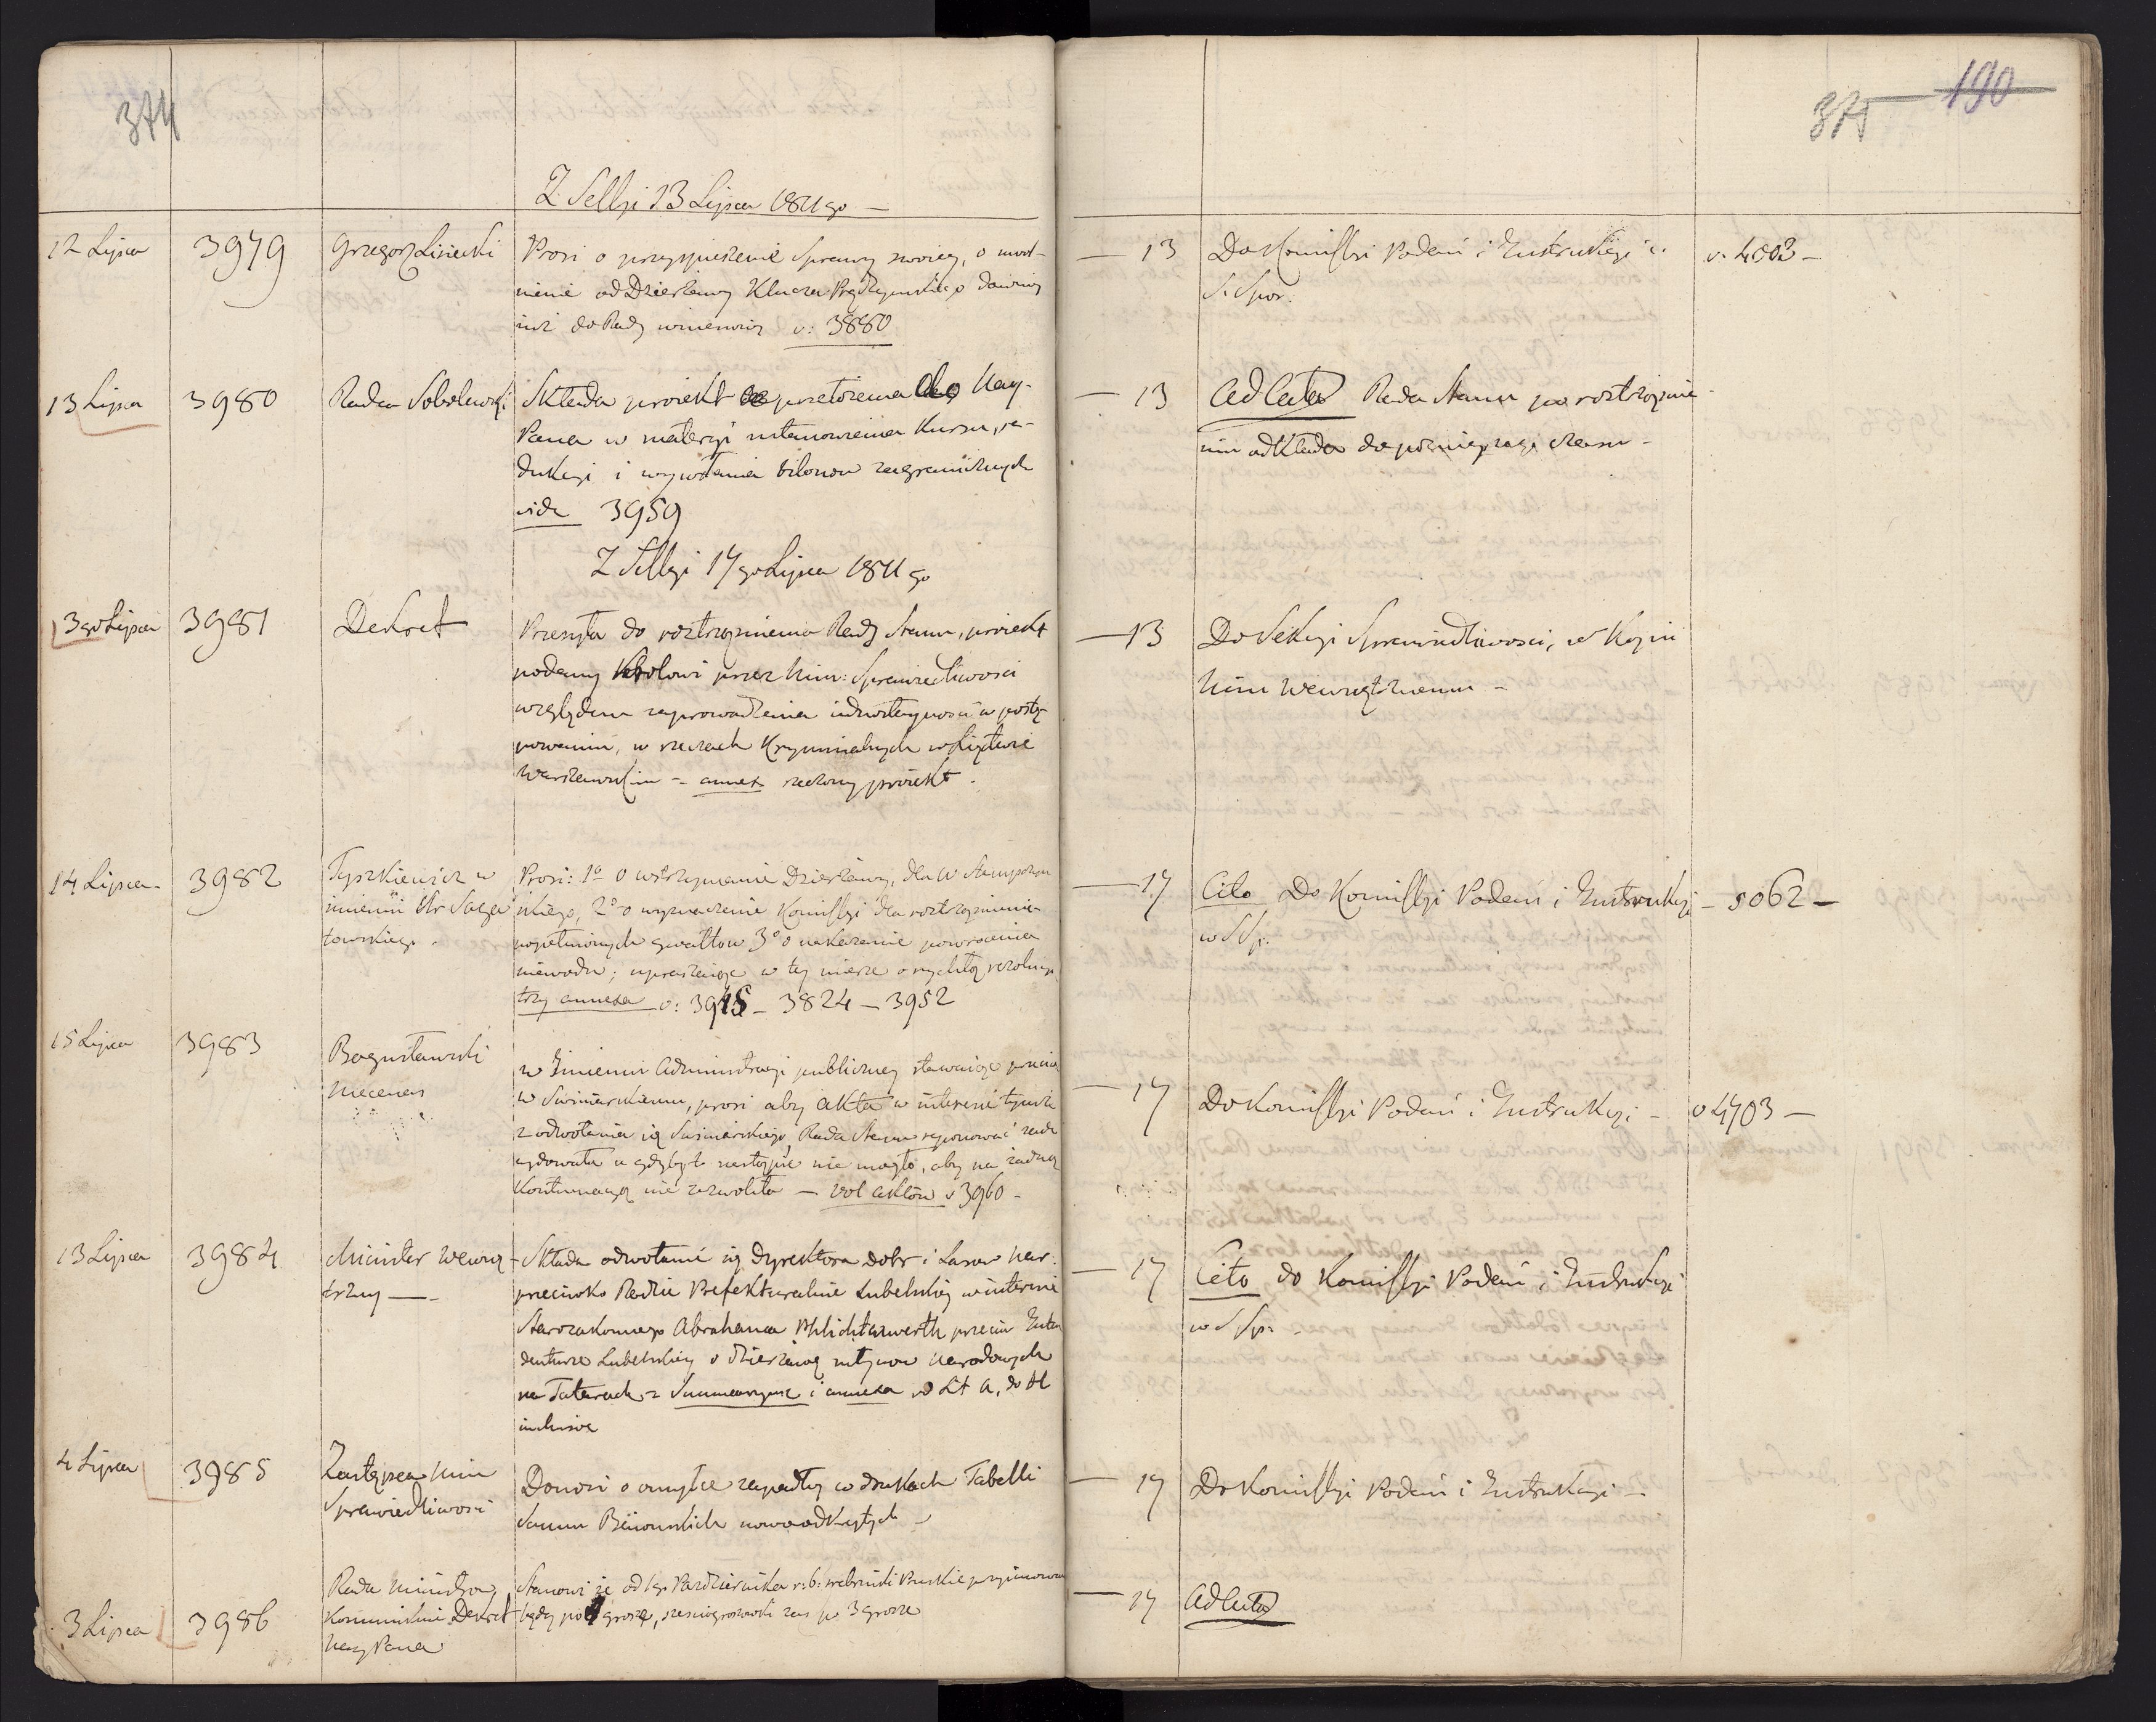 374
375 190
Z Sessyi 13 Lipca 1811 go —
12 Lipca 3979 Grzegorz Lisiecki Prosi o przyspieszenie Sprawy swoiey, o uwol-
nienie od Dzierżawy Klucza dawniey
iuż do Rady wniesioney v: 3880
— 13 Do Komissyi Podań i Instrukcyi
S. Spor.
v. 4503 —
13 Lipca 3980 Radca Sobolewski Składa proiekt przełożenia do Nay-
Pana w materyi ustanowienia Kursu, re-
dukcyi i wywołania bilonow zagranicznych
vide 3959
— 13 ad acta Rada Stanu po roztrząśnie-
niu odkłada do poźnieyszego czasu —
Z Sessyi 17 go Lipca 1811 go
3 go Lipca 3981 Dekret Przesyła do roztrząśnienia Rady Stanu, proiekt
podany Krolowi przez Min: Sprawiedliwości
względem zaprowadzenia iednostayności w postę-
powaniu, w rzeczach Kryminalnych w Xięstwie
Warszawskim — annex rzeczony proiekt.
— 13 Do Sekcyi Sprawiedliwości, w Kopii
Min Wewnętrznemu —
14 Lipca 3982 Tyszkiewicz w
imieniu
Prosi: 1o o wstrzymanie Dzierżawy, dla W
2o o wyznaczenie Komissyi dla roztrząśnienia
popełnionych gwałtow 3o o nakazanie powrocenia
niewodu; upraszaiąc w tey mierze o rychłą rezolucyą
trzy annexa v: 3915 — 3824 — 3952
— 17 Cito Do Komissyi Podań i Instrukcyi
w S Sp.
— 5062 —
15 Lipca 3983 Bogusławski
Mecenas
w Imieniu Administracyi publiczney stawaiąc przeciw
W Suminskiemu, prosi aby akta w interesie tymże
z odwołania się Suminskiego, Rada Stanu reponować zade-
cydowała a gdyby to nastąpić nie mogło, aby na żadną
Kontumacyą nie zezwoliła — vol aktow v 3960 —
— 17 Do Komissyi Podań i Instrukcyi — v 4703 —
13 Lipca 3984 Minister Wewnę-
trzny —
Składa odwołanie się Dyrektora Dobr i Lasow Nar:
przeciwko Radzie Prefekturalnie Lubelskiey w interesie
Starozakonnego Abrahama przeciw Inten-
denturze Lubelskiey o dzierżawę młynow Narodowych
na Tatarach — Summaryusz i annexa od Lt A, do H
inclusive
— 17 Cito do Komissyi Podań i Instrukcyi
w S Sp: —
4 Lipca 3985 Zastępca Min
Sprawiedliwości
Donosi o omyłce zapadłey w drukach Tabelli
Summ nowoodkrytych —
— 17 Do Komissyi Podań i Instrukcyi —
3 Lipca 3986 Rada Ministrow
Kommunikuie Dekret
Nay Pana
Stanowi że od 1go Października r: b: srebrniki Pruskie przyimowane
będą po grosze, sześciogroszowki zaś po 3 grosze
— 17 ad acta